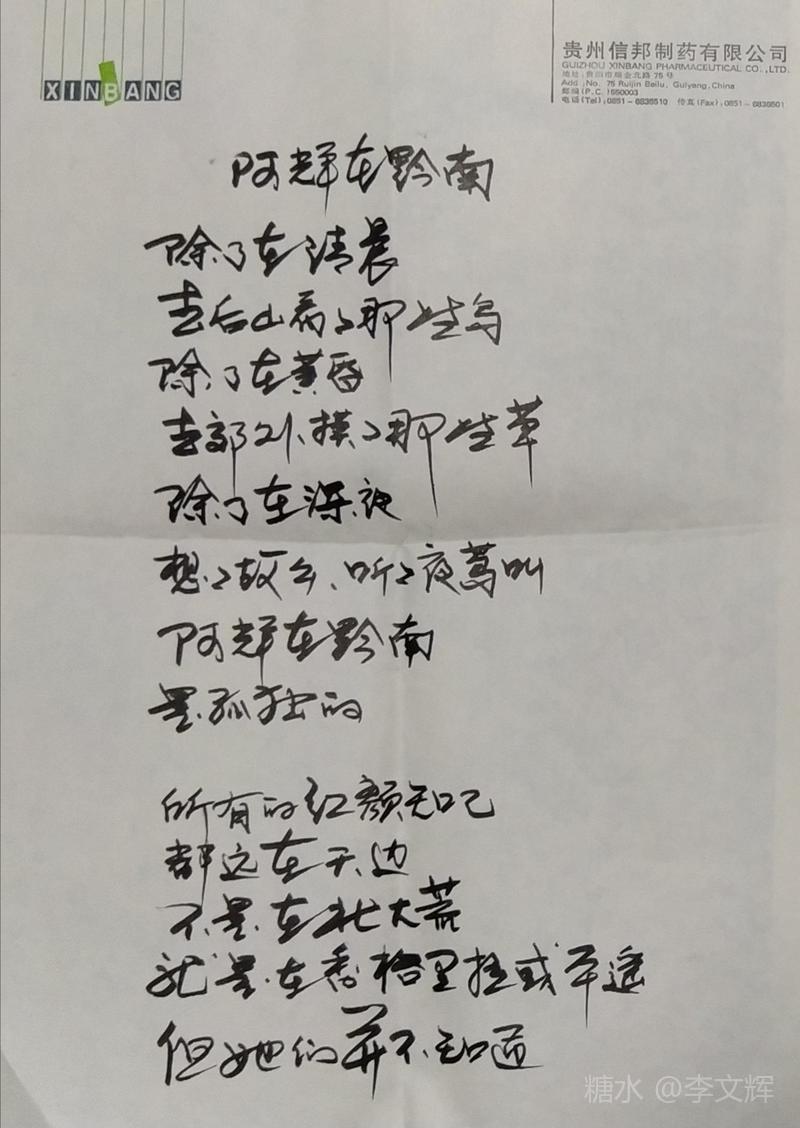 XINBANG
贵州信邦制药有限公司
GUIZHOU XINBANG PHARMACEUTICAL CO.,LTD.
地址:贵阳市瑞金北路 75 号
Add: No. 75 Ruijin Beilu, Guiyang, China
邮编(P.C.)550003
电话(Tel):0851-6836510 传真(Fax):0851-6836501
阿辉在黔南
除了在清晨
去后山看看那些鸟
除了在黄昏
去郊外摸摸那些草
除了在深夜
想想故乡、听听夜莺叫
阿辉在黔南
是孤独的
所有的红颜知己
都远在天边
不是在北大荒
就是在香格里拉或平遥
但她们并不知道
糖水 @李文辉